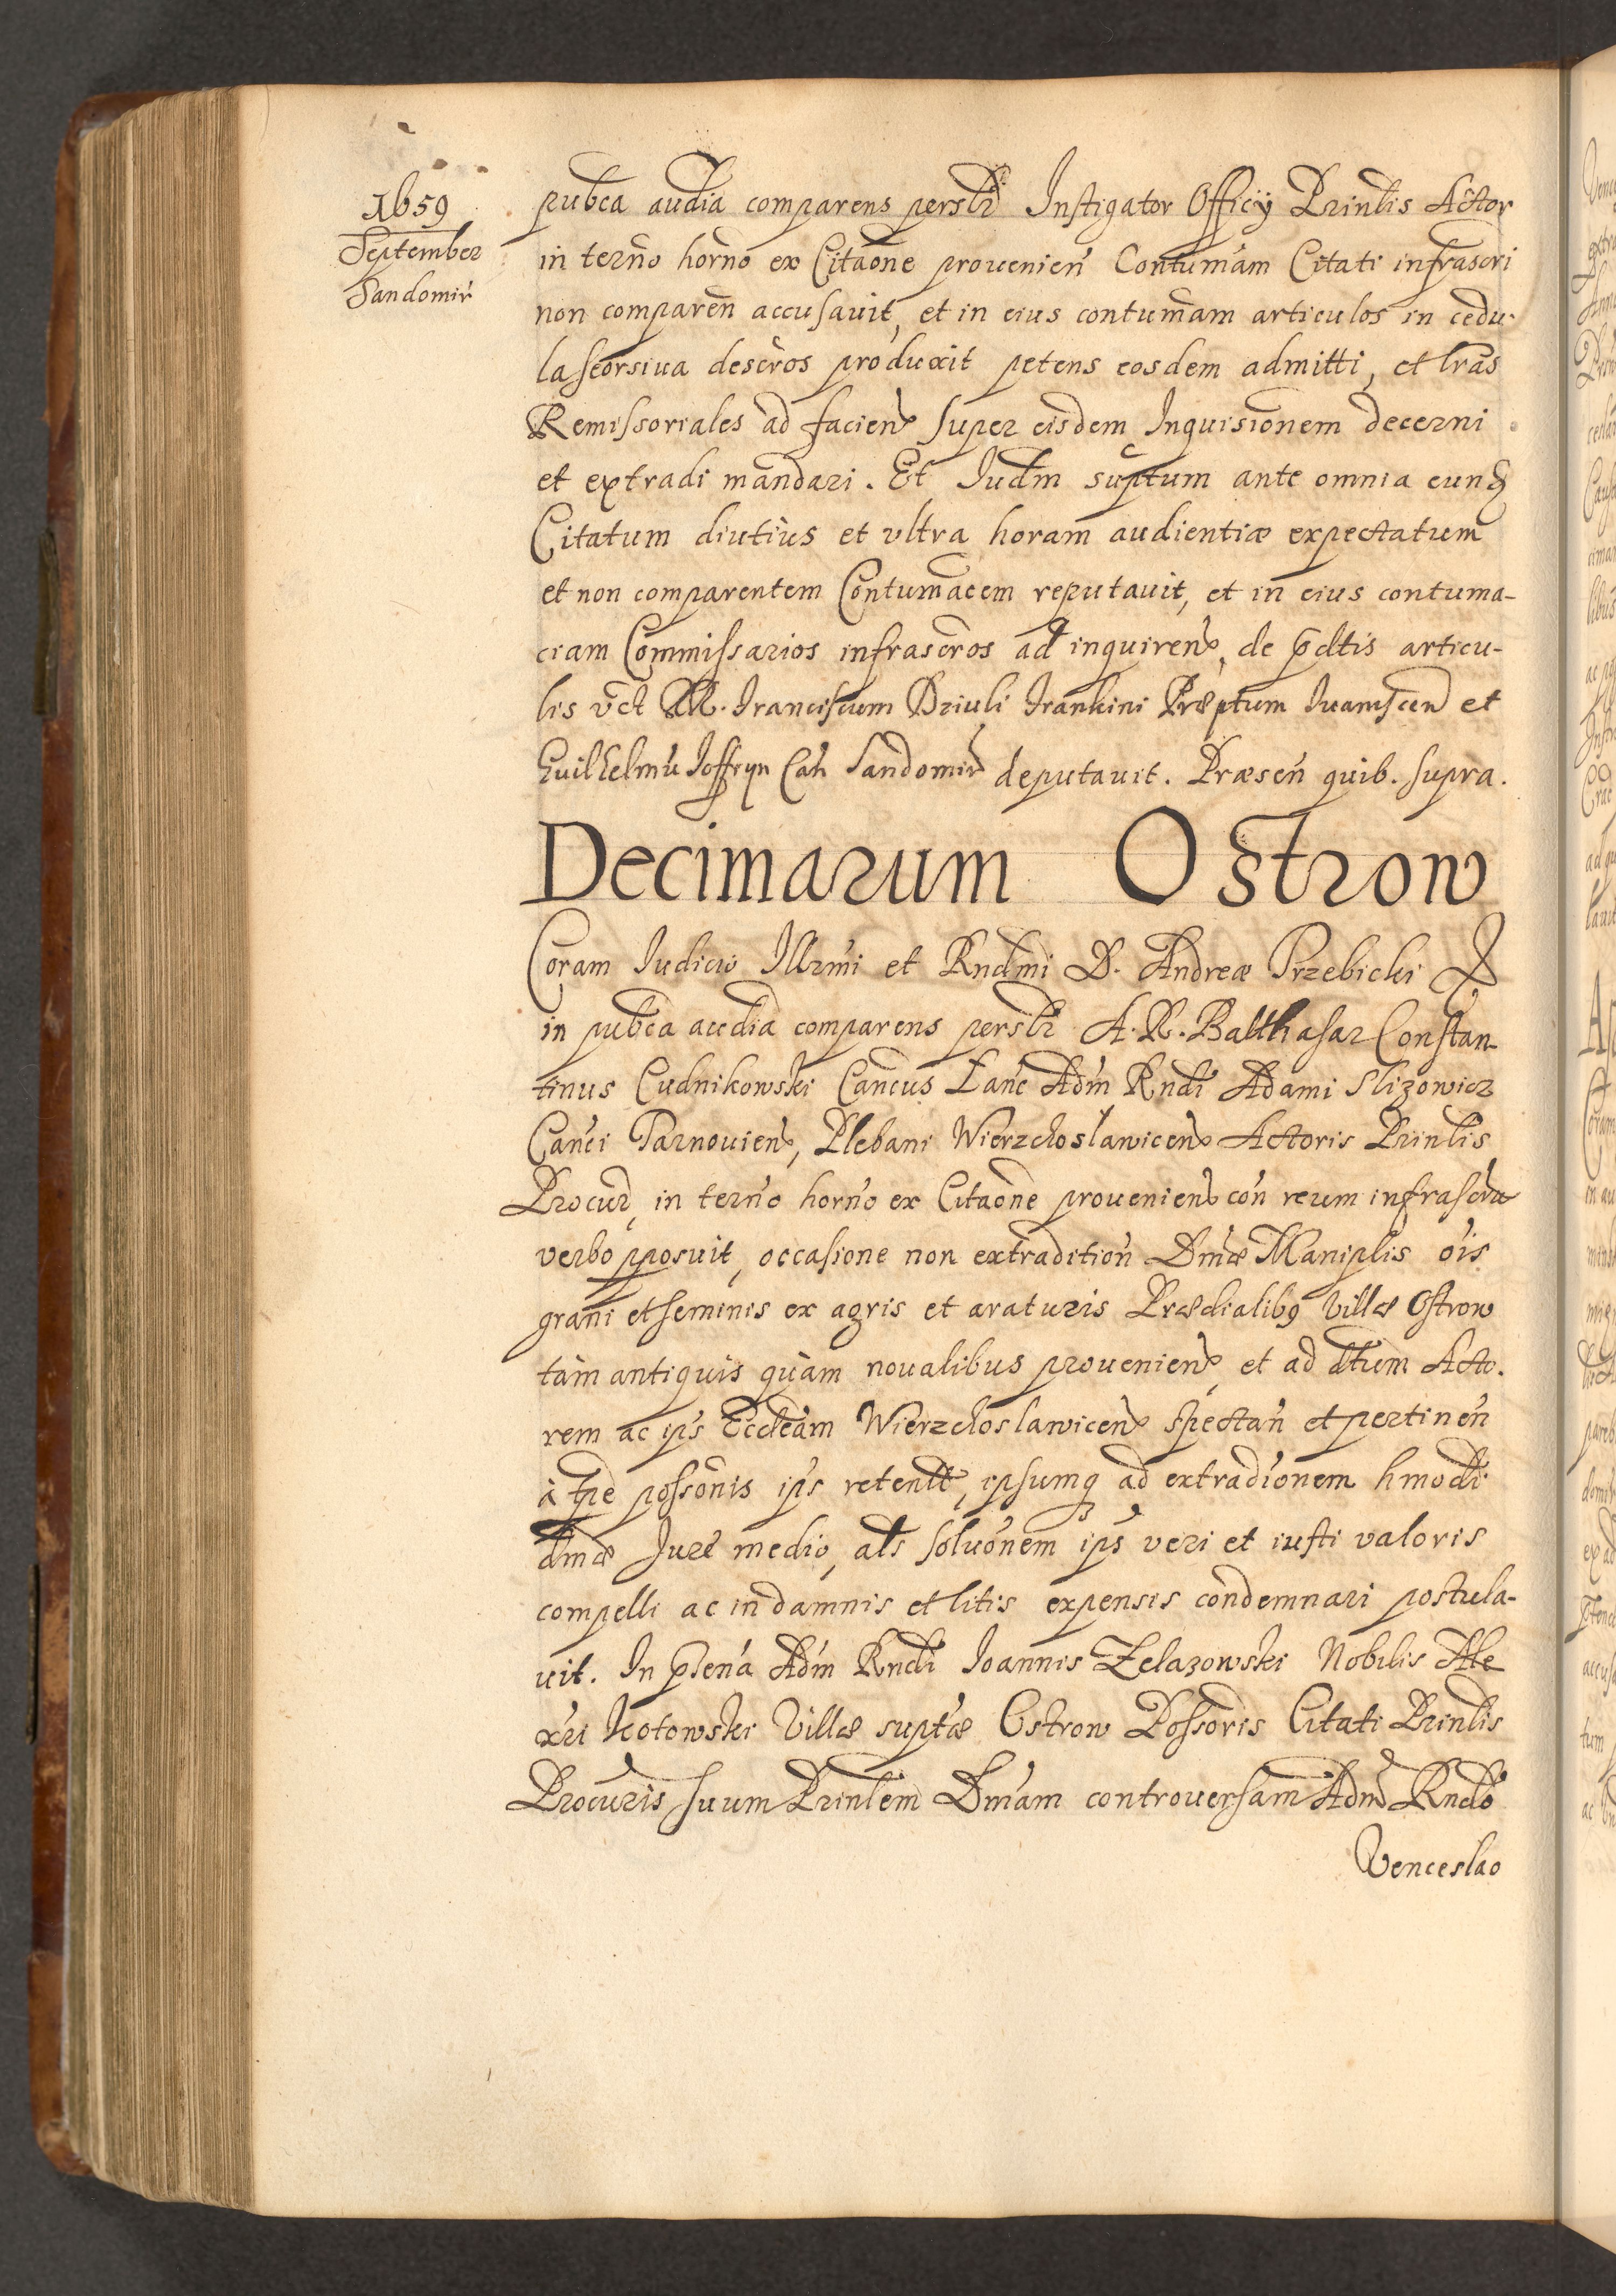 1659
September
Sandomir
pubca audia comparens perslr Instigator Officÿ Prinlis Actor
in terno horno ex Citaone prouenien Contumam Citati infrascri
non comparen accusauit, et in eius contumam articulos in cedu-
la seorsiua descros produxit petens eosdem admitti, et lras
Remissoriales ad facien super eisdem Inquisionem decerni
et extradi mandari. Et Iudm suptum ante omnia eunq
Citatum diutius et vltra horam audientiæ expectatum
et non comparentem Contumacem reputauit, et in eius contuma-
ciam Commissarios infrascros ad inquiren, de pdtis articu-
lis vct RR. Franciscum Priuli Frankini Præptum Iuaniscen et
Guilhelmu Joffryn Can Sandomir deputauit. Præsen quib. supra.
Decimarum Ostrow
Coram Iudicio Illrmi et Rndmi D. Andreæ Trzebicki
in pubca audia comparens perslr A. R. Balthasar Constan-
tinus Cudnikowski Cancus Lanc Adm Rndi Adami Slizowicz
Canci Tarnouien, Plebani Wierzchoslawicen Actoris Prinlis
Procur, in terno horno ex Citaone prouenien con reum infrascru
verbo pposuit, occasione non extradition Dmæ Maniplis ois
grani et seminis ex agris et araturis Prædialibq Villæ Ostrow
tàm antiquis quàm noualibus prouenien, et ad dtum Acto-
rem ac ips Eccleam Wierzchoslawicen spectan et pertinen
à tpe possonis ips retent, ipsumq ad extradionem hmodi
dmæ Iure medio, als soluonem ips veri et iusti valoris
compelli ac in damnis et litis expensis condemnari postula-
uit. In psena Adm Rndi Ioannis Zelazowski Nobilis Ale
xri Kotowski Villæ suptæ Ostrow Possoris Citati Prinlis
Procuris suum Prinlem Dmam controuersam Adm Rndo
Venceslao